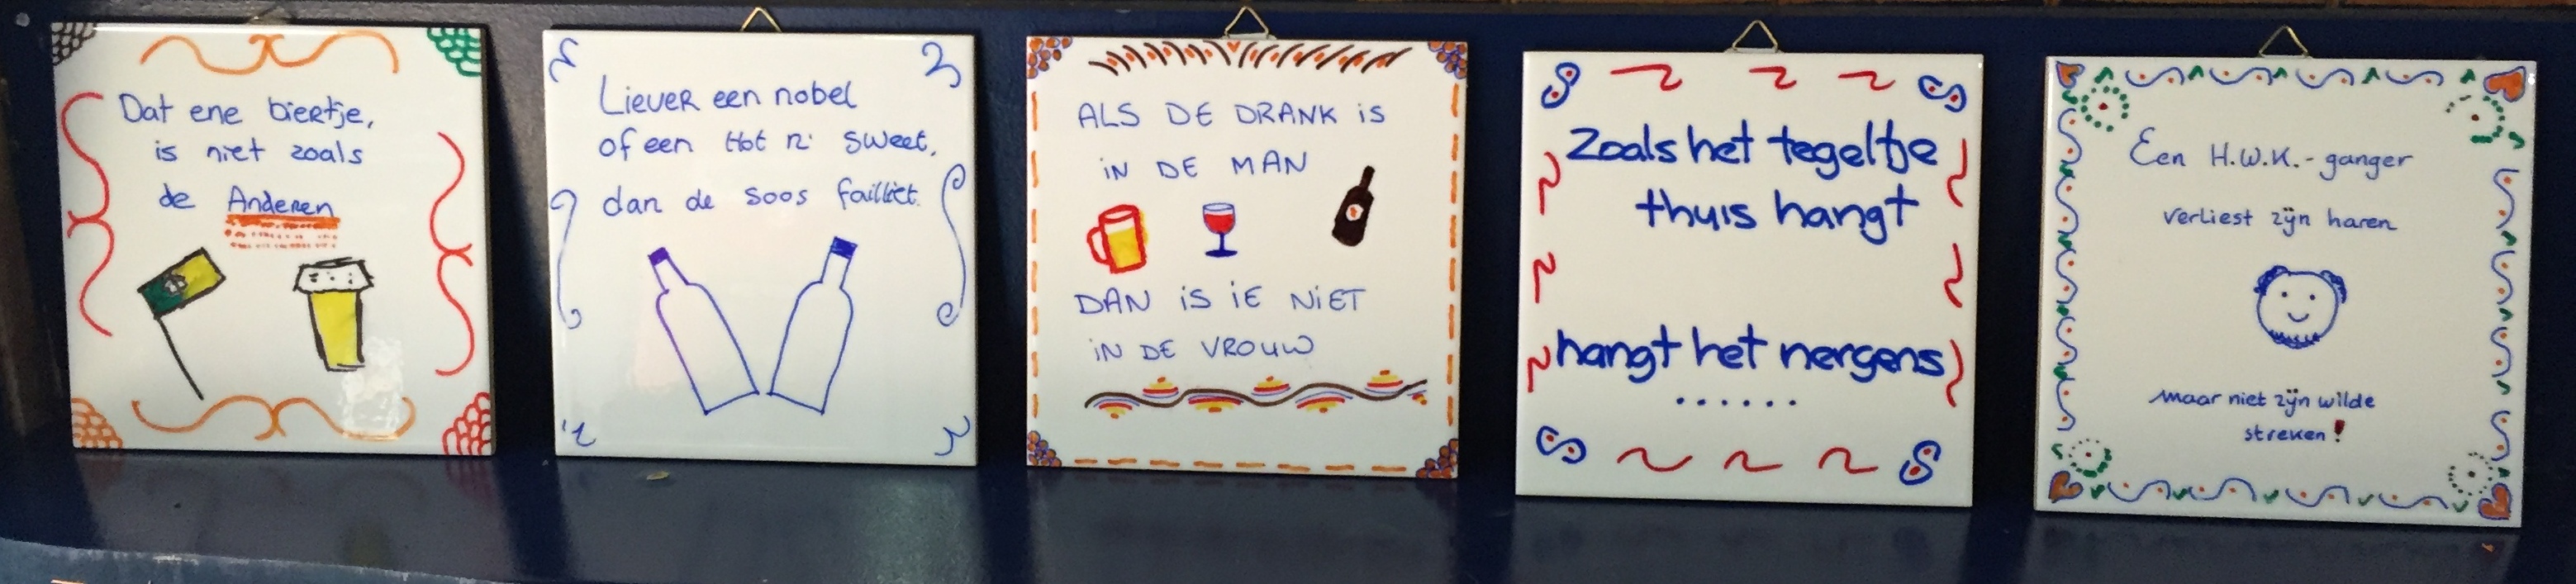 Dat ene biertje,
is niet zoals
de Anderen
Liever een nobel
of een sweet,
dan de soos failliet.
ALS DE DRANK is
iN DE MAN
DAN iS iE NiET
iN DE VROUW
Zoals het tegeltje
thuis hangt
hangt het nergens
......
Een H.W.K.-ganger
verliest zijn haren
maar niet zijn wilde
streken!